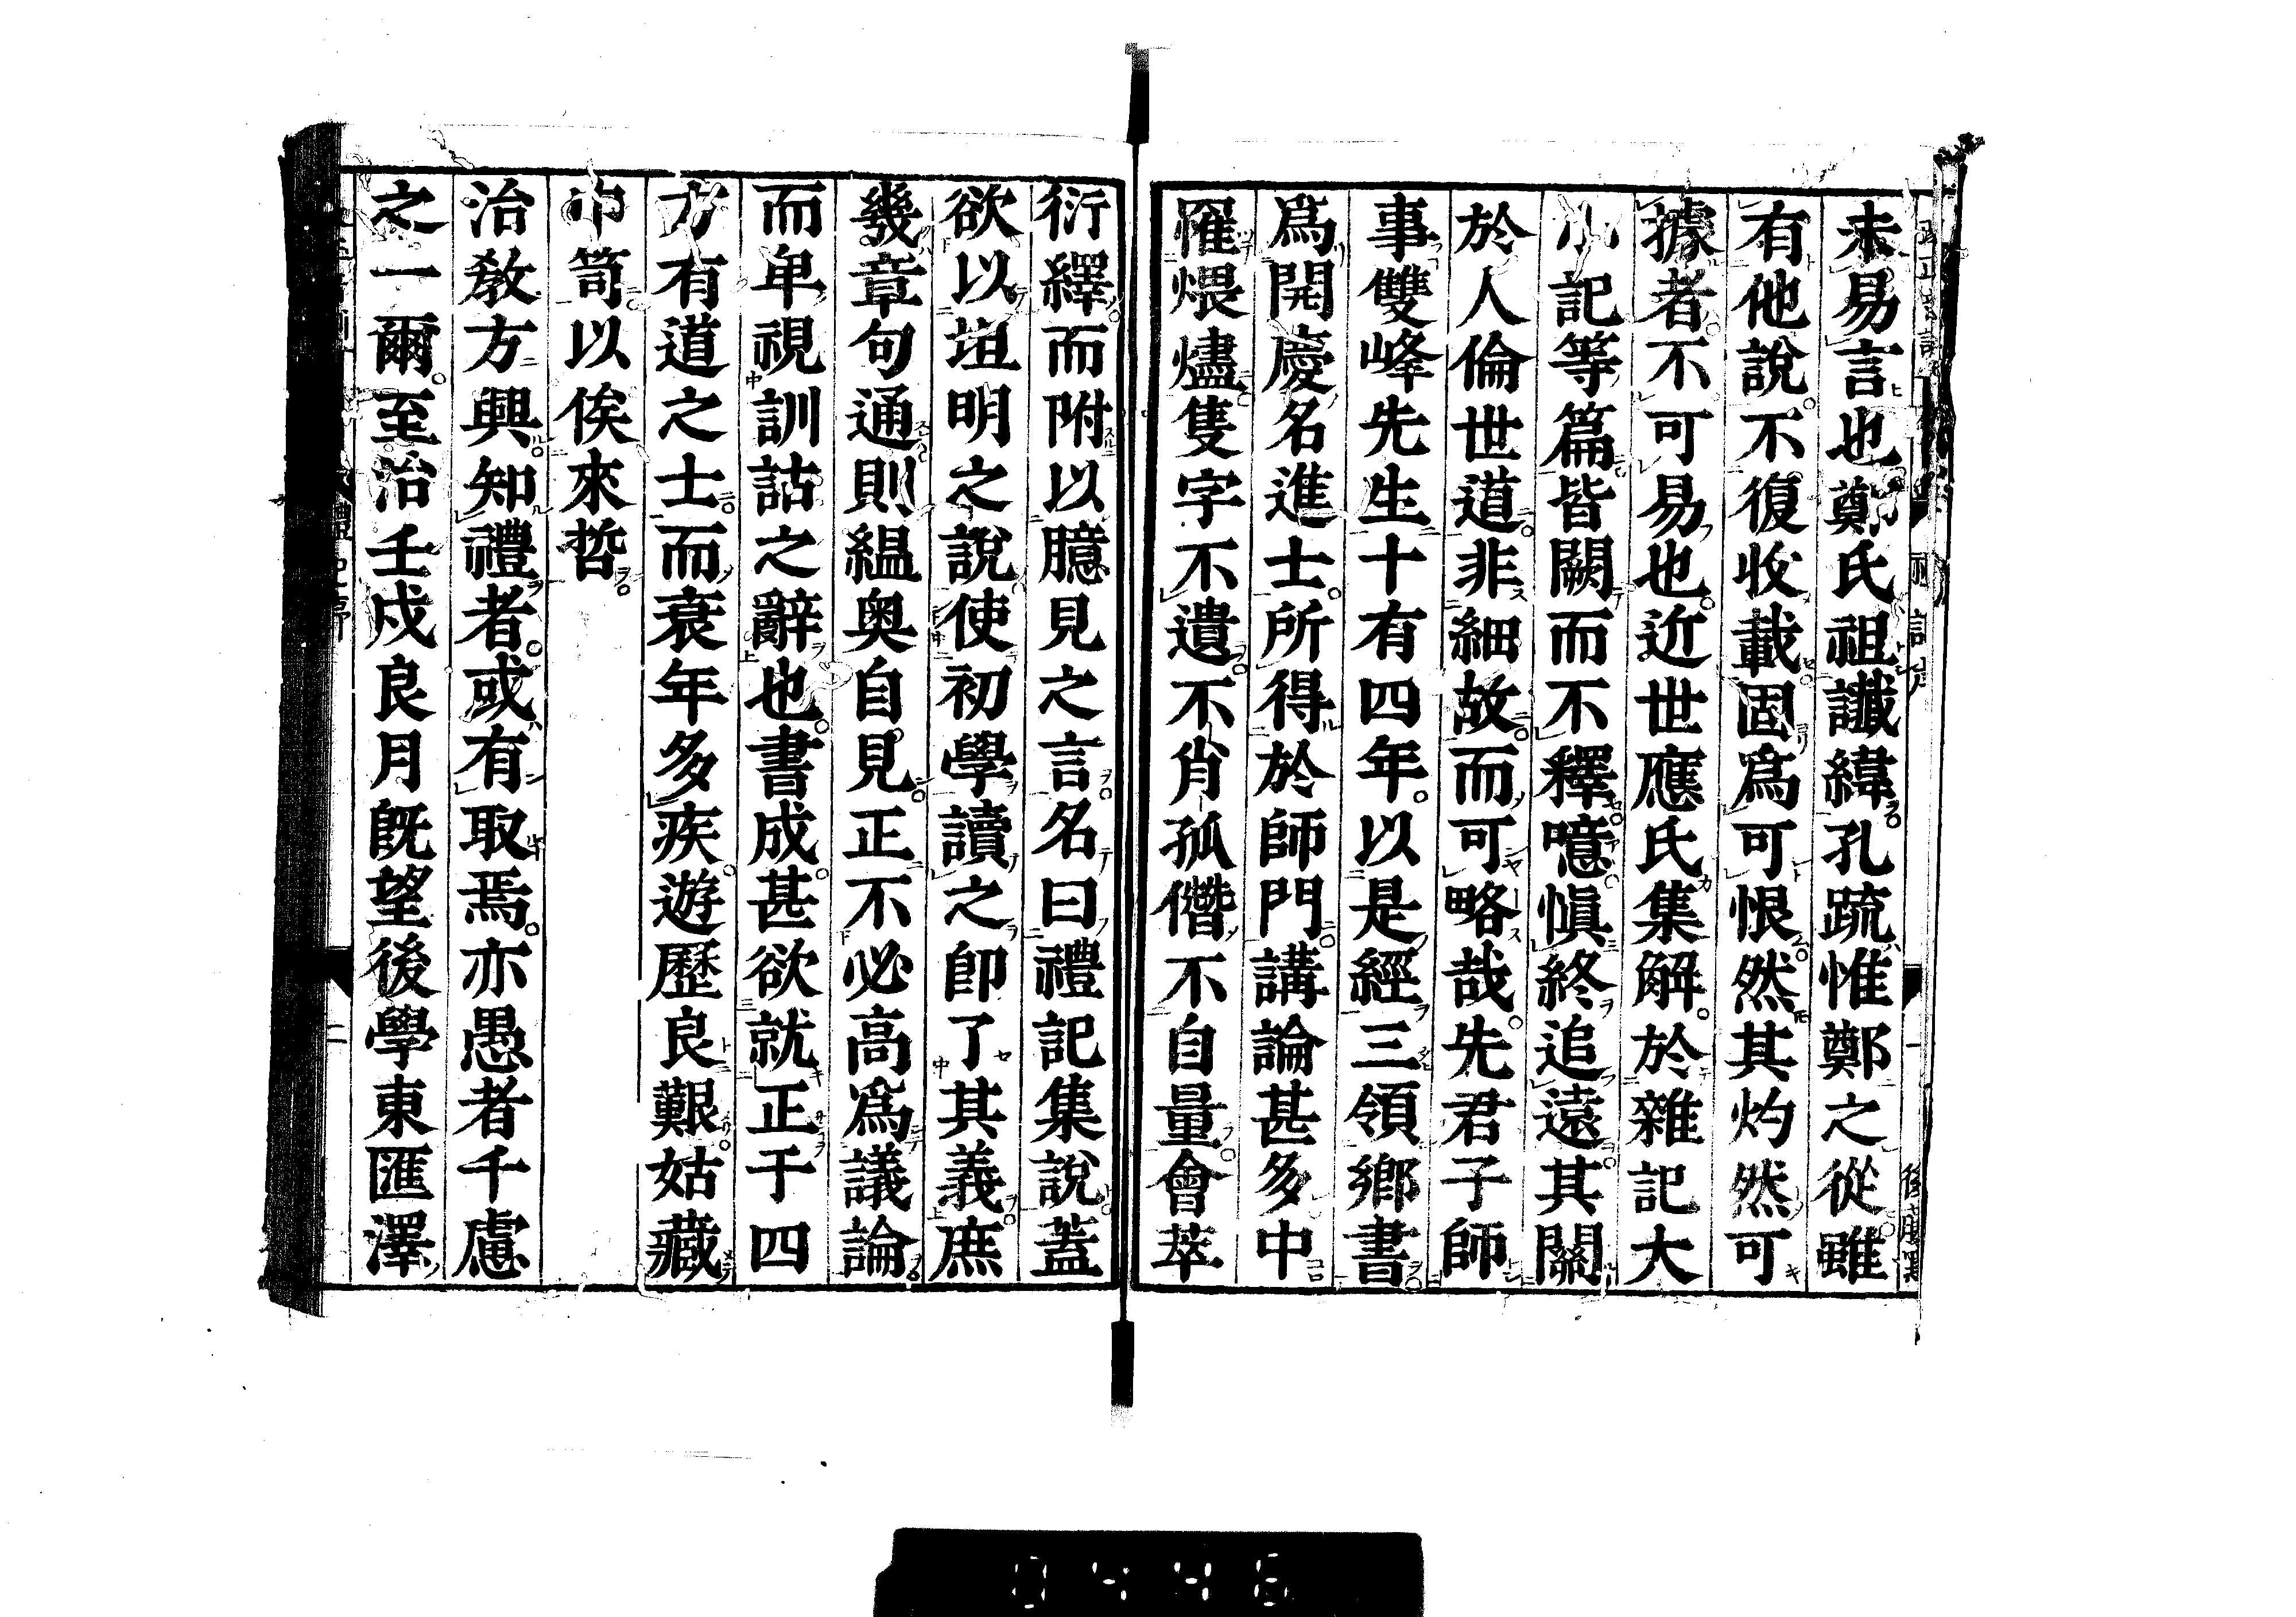 未易言也鄭氏祖讖緯孔疏惟鄭之從雖
有他說不復收載固爲可恨然其灼然可
據者不可易也近世應氏集解於雜記大
小記等篇皆闕而不釋噫愼終追遠其關
於人倫世道非細故而可略哉先君子師
事雙峰先生十有四年以是經三領鄕書
爲開慶名進士所得於師門講論甚多中
罹煨燼隻字不遺不肖孤僭不自量會萃
衍繹而附以臆見之言名曰禮記集說蓋
欲以坦明之說使初學讀之即了其義庶
幾章句通則縕奥自見正不必高爲議論
而卑視訓詁之辭也書成甚欲就正于四
方有道之士而衰年多疾遊歷良艱姑藏
巾笥以俟來哲
治敎方興知禮者或有取焉亦愚者千慮
之一爾至治壬戌良月旣望後學東匯澤
0446